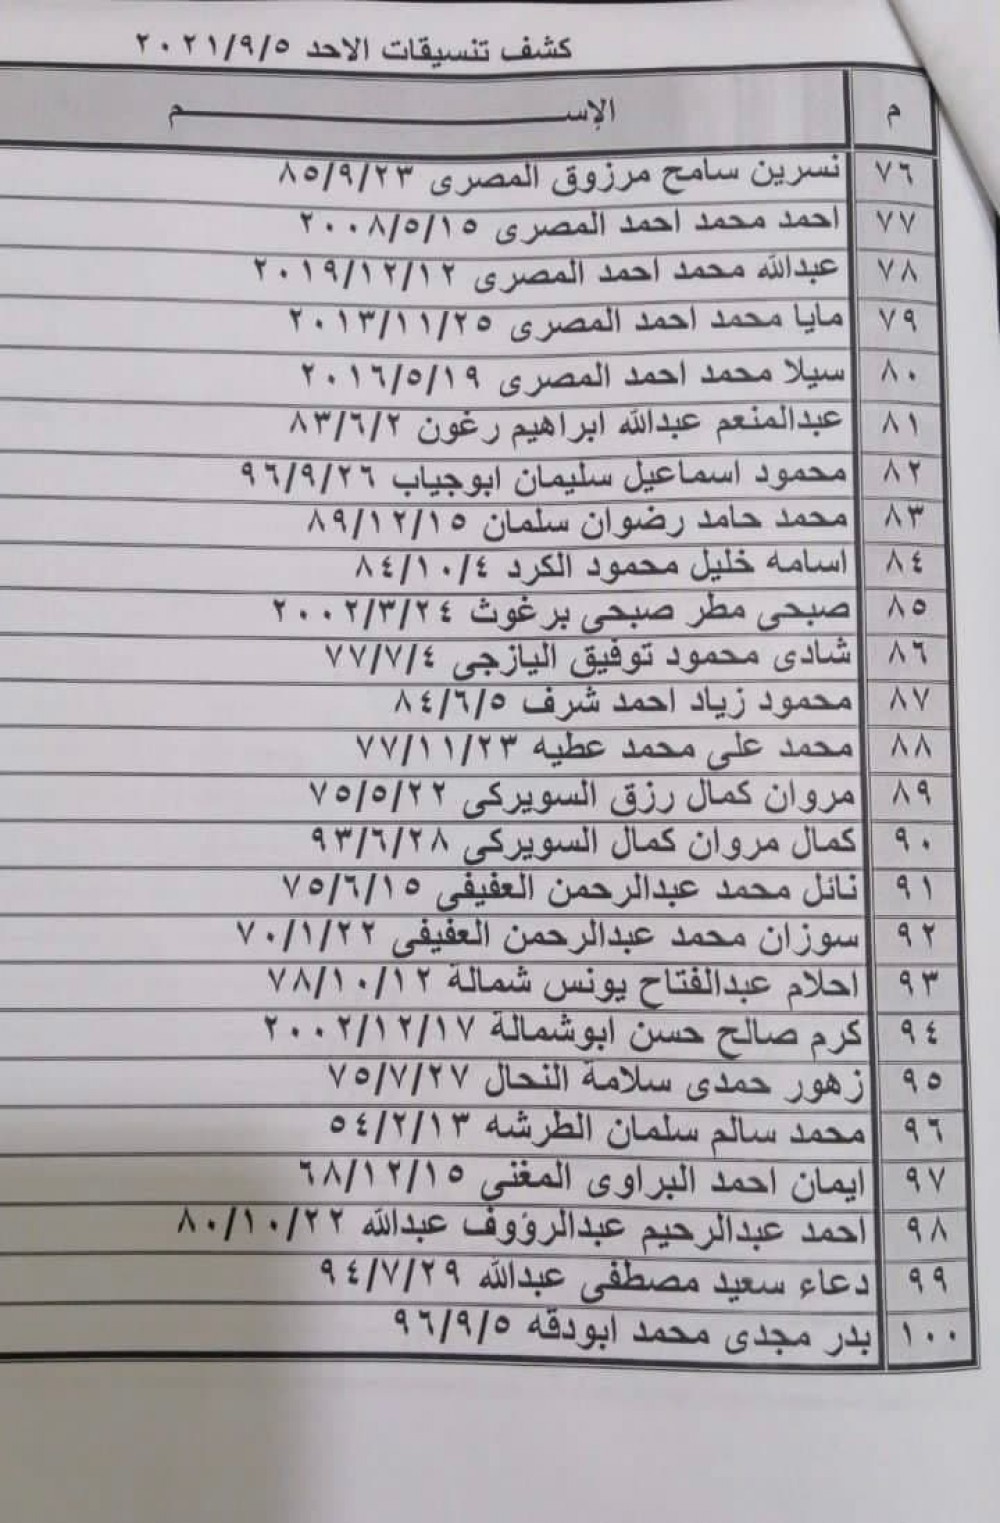 كشف تنسيقات الاحد ٢٠٢١/٩/٥
م الإســـــــم
٧٦ نسرين سامح مرزوق المصرى ٨٥/٩/٢٣
٧٧ احمد محمد احمد المصرى ٢٠٠٨/٥/١٥
٧٨ عبدالله محمد احمد المصرى ٢٠١٩/١٢/١٢
٧٩ مايا محمد احمد المصرى ٢٠١٣/١١/٢٥
٨٠ سيلا محمد احمد المصرى ٢٠١٦/٥/١٩
٨١ عبدالمنعم عبدالله ابراهيم رغون ٨٣/٦/٢
٨٢ محمود اسماعيل سليمان ابوجياب ٩٦/٩/٢٦
٨٣ محمد حامد رضوان سلمان ٨٩/١٢/١٥
٨٤ اسامه خليل محمود الكرد ٨٤/١٠/٤
٨٥ صبحى مطر صبحى برغوث ٢٠٠٢/٣/٢٤
٨٦ شادى محمود توفيق اليازجى ٧٧/٧/٤
٨٧ محمود زياد احمد شرف ٨٤/٦/٥
٨٨ محمد على محمد عطيه ٧٧/١١/٢٣
٨٩ مروان كمال رزق السويركى ٧٥/٥/٢٢
٩٠ كمال مروان كمال السويركى ٩٣/٦/٢٨
٩١ نائل محمد عبدالرحمن العفيفى ٧٥/٦/١٥
٩٢ سوزان محمد عبدالرحمن العفيفى ٧٠/١/٢٢
٩٣ احلام عبدالفتاح يونس شمالة ٧٨/١٠/١٢
٩٤ كرم صالح حسن ابوشمالة ٢٠٠٢/١٢/١٧
٩٥ زهور حمدى سلامة النحال ٧٥/٧/٢٧
٩٦ محمد سالم سلمان الطرشه ٥٤/٢/١٣
٩٧ ايمان احمد البراوى المغنى ٦٨/١٢/١٥
٩٨ احمد عبدالرحيم عبدالرؤوف عبدالله ٨٠/١٠/٢٢
٩٩ دعاء سعيد مصطفى عبدالله ٩٤/٧/٢٩
١٠٠ بدر مجدى محمد ابودقه ٩٦/٩/٥